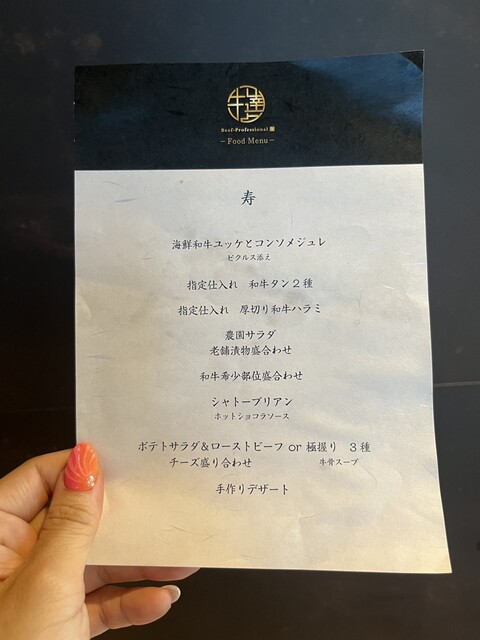 牛達
Beef-Professional
- Food Menu -
寿
海鮮和牛ユッケとコンソメジュレ
ピクルス添え
指定仕入れ 和牛タン2種
指定仕入れ 厚切り和牛ハラミ
農園サラダ
老舗漬物盛合わせ
和牛希少部位盛合わせ
シャトーブリアン
ホットショコラソース
ポテトサラダ&ローストビーフ or 極握り 3種
チーズ盛り合わせ 牛骨スープ
手作りデザート